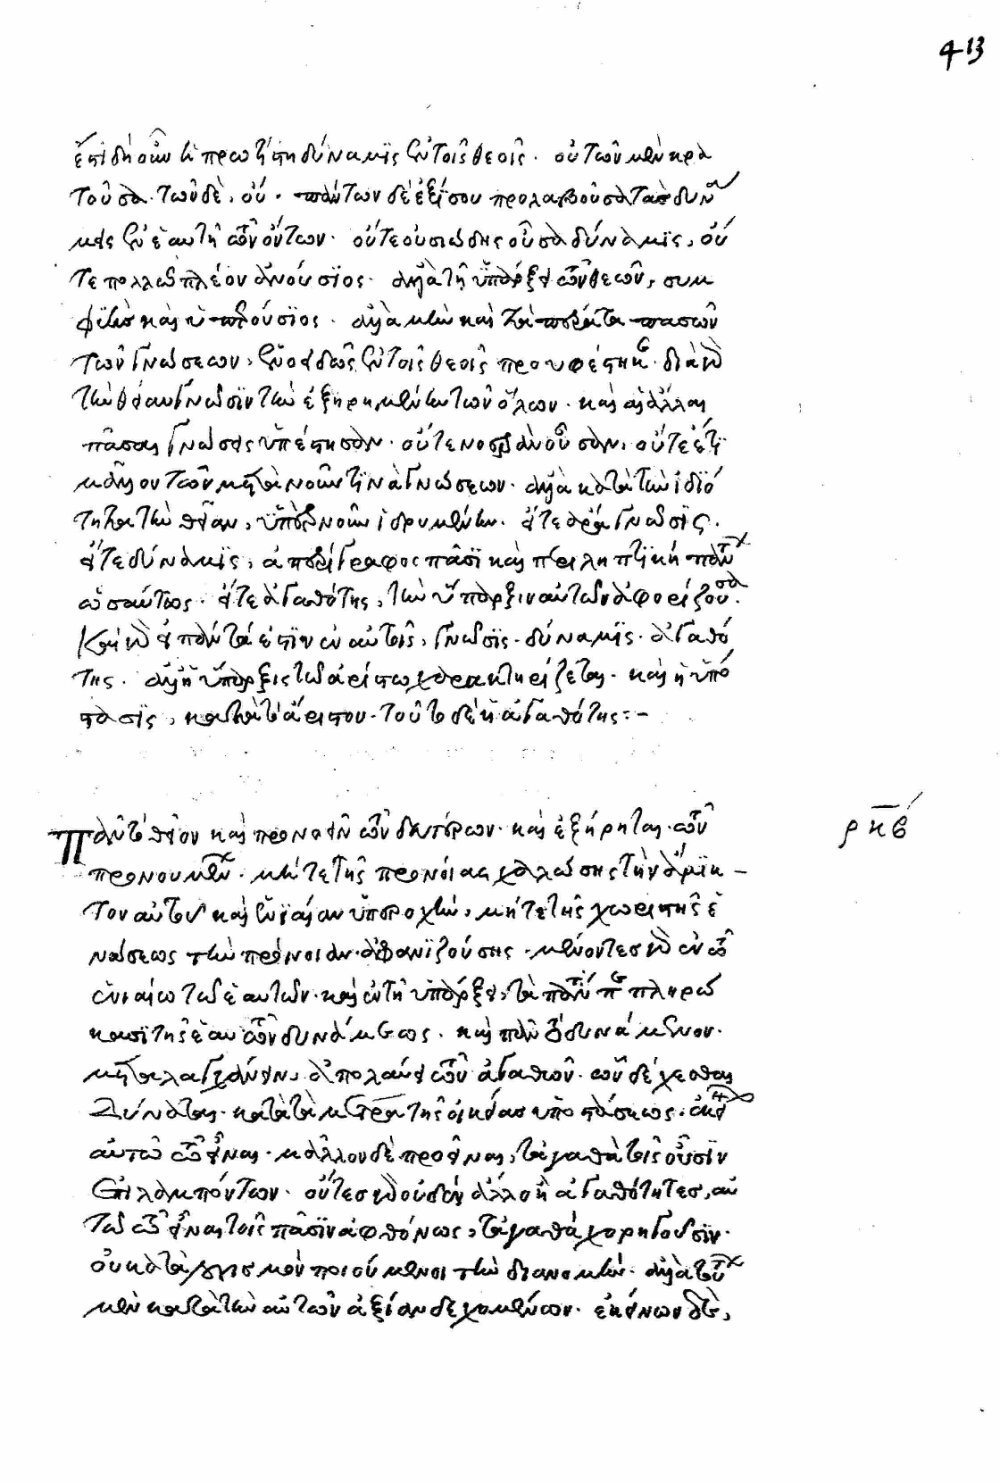 ἐπειδὴ οὖν ἡ πρωτίστη δύναμις ἐν τοῖς θεοῖς. οὐ τῶν μὲν κρα
τοῦσα. τῶν δὲ, οὔ. πάντων δὲ ἐξίσου προλαβοῦσα τὰς δυνά
μεις ἐν ἑαυτῇ τῶν ὄντων. οὔτε οὐσιώδης οὖσα δύναμις, οὔ
τε πολλῶ πλέον ἀνούσιος. ἀλλὰ τῇ ὑπάρξει τῶν θεῶν, συμ
φυὴς καὶ ὑπερούσιος. ἀλλὰ μὴν καὶ τὰ πέρατα πασῶν
τῶν γνώσεων, ἑνοειδῶς ἐν τοῖς θεοῖς προυφέστηκε. διὰ γὰρ
τὴν θείαν γνῶσιν τὴν ἐξηρημένην τῶν ὅλων. καὶ αἱ ἄλλαι
πᾶσαι γνώσεις ὑπέστησαν. οὔτε νοερὰν οὖσαν, οὔτε ἔτι
μᾶλλον τῶν μετὰ νοῦν τινὰ γνώσεων. ἀλλὰ κατὰ τὴν ἰδιό
τητα τὴν θείαν, ὑπὲρ νοῦν ἱδρυμένην. εἴτε ἄρα γνῶσις.
εἴτε δύναμις, ἀπερίγραφος πᾶσι καὶ περιληπτικὴ πάντων
ὡσαύτως. εἴτε ἀγαθότης, τὴν ὕπαρξιν αὐτῶν ἀφορίζουσα.
καὶ γὰρ εἰ πάντά ἐστιν ἐν αὐτοῖς, γνῶσις. δύναμις. ἀγαθό
της. ἀλλ' ἡ ὕπαρξις τῶ ἀρίστω χαρακτηρίζεται. καὶ ἡ ὑπό
στασις, κατὰ τὸ ἄριστον. τοῦτο δὲ ἡ ἀγαθότης:-
Πᾶν τὸ θεῖον καὶ προνοεῖ τῶν δευτέρων. καὶ ἐξήρηται τῶν
προνουμένων. μήτε τῆς προνοίας χαλώσης τὴν ἄμικ-
τον αὐτοῦ καὶ ἑνιαίαν ὑπεροχὴν, μήτε τῆς χωριστῆς ἑ
νώσεως τὴν πρόνοιαν ἀφανιζούσης. μένοντες γὰρ ἐν τῶ
ἑνιαίω τῶ ἑαυτῶν. καὶ ἐν τῇ ὑπάρξει, τὰ πάντα πεπληρώ
κασι τῆς ἑαυτῶν δυνάμεως. καὶ πᾶν τὸ δυνάμενον.
μεταλαγχάνειν, ἀπολαύει τῶν ἀγαθῶν. ὧν δέχεσθαι
δύναται. κατὰ τὰ μέτρα τῆς οἰκείας ὑποστάσεως. ἐκείνων
αὐτῶ τῶ εἶναι. μᾶλλον δὲ προεῖναι, τἀγαθὰ τοῖς οὖσιν
ἐπιλαμπόντων. ὄντες γὰρ οὐδὲν ἄλλο ἢ ἀγαθότητες, αὐ
τῶ τῶ εἶναι τοῖς πᾶσιν ἀφθόνως, τἀγαθὰ χορηγοῦσιν.
οὐ κατὰ λογισμὸν ποιούμενοι τὴν διανομήν. ἀλλὰ τούτων
μὲν κατὰ τὴν αὐτῶν ἀξίαν δεχομένων. ἐκείνων δὲ,
ρκβ
413